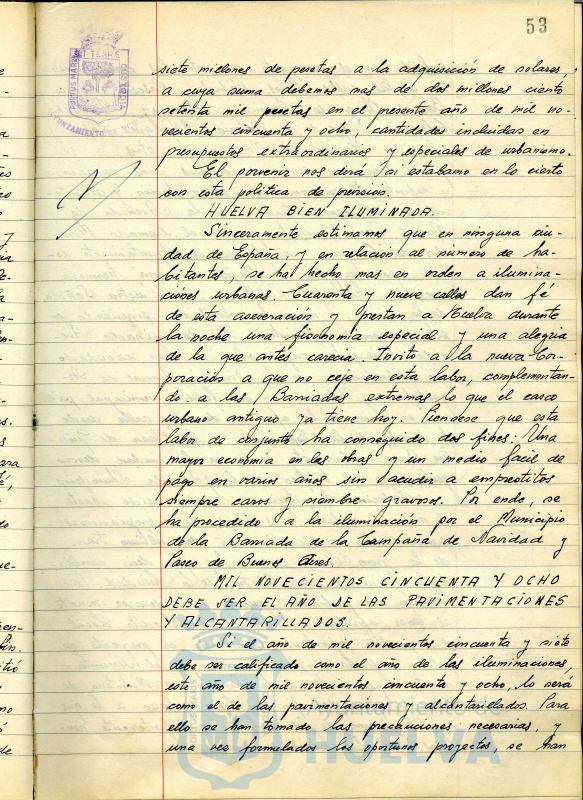 53
siete millones de pesetas a la adquisición de solares,
a cuya suma debemos mas de dos millones ciento
setenta mil pesetas en el presente año de mil no-
vecientos cincuenta y ocho, cantidades incluidas en
presupuestos extraordinarios y especiales de urbanismo.
El porvenir nos dirá si estabamo en lo cierto
con esta politica de prevision.
HUELVA BIEN ILUMINADA.
Sinceramente estimamos que en ninguna ciu-
dad de España, y en relación al número de ha-
bitantes, se ha hecho mas en orden a ilumina-
ciones urbanas. Cuarenta y nueve calles dan fé
de esta aseveración y prestan a Huelva durante
la noche una fisonomia especial y una alegria
de la que antes carecia. Invito a la nueva Cor-
poración a que no ceje en esta labor, complementan-
do a las Barriadas extremas lo que el casco
urbano antiguo ya tiene hoy. Piendese que esta
labor de conjunto ha conseguido dos fines: Una
mayor economia en las obras y un medio facil de
pago en varios años sin acudir a emprestitos
siempre caros y siembre gravosos. Por ende, se
ha procedido a la iluminación por el Municipio
de la Barriada de la Campaña de Navidad y
Paseo de Buenos Aires.
MIL NOVECIENTOS CINCUENTA Y OCHO
DEBE SER EL AÑO DE LAS PAVIMENTACIONES
Y ALCANTARILLADOS.
Si el año de mil novecientos cincuenta y siete
debe ser calificado como el año de las iluminaciones,
este año de mil novecientos cincuenta y ocho, lo será
como el de las pavimentaciones y alcantarillados. Para
ello se han tomado las precauciones necesarias, y
una vez formulados los oportunos proyectos, se han
HUELVA